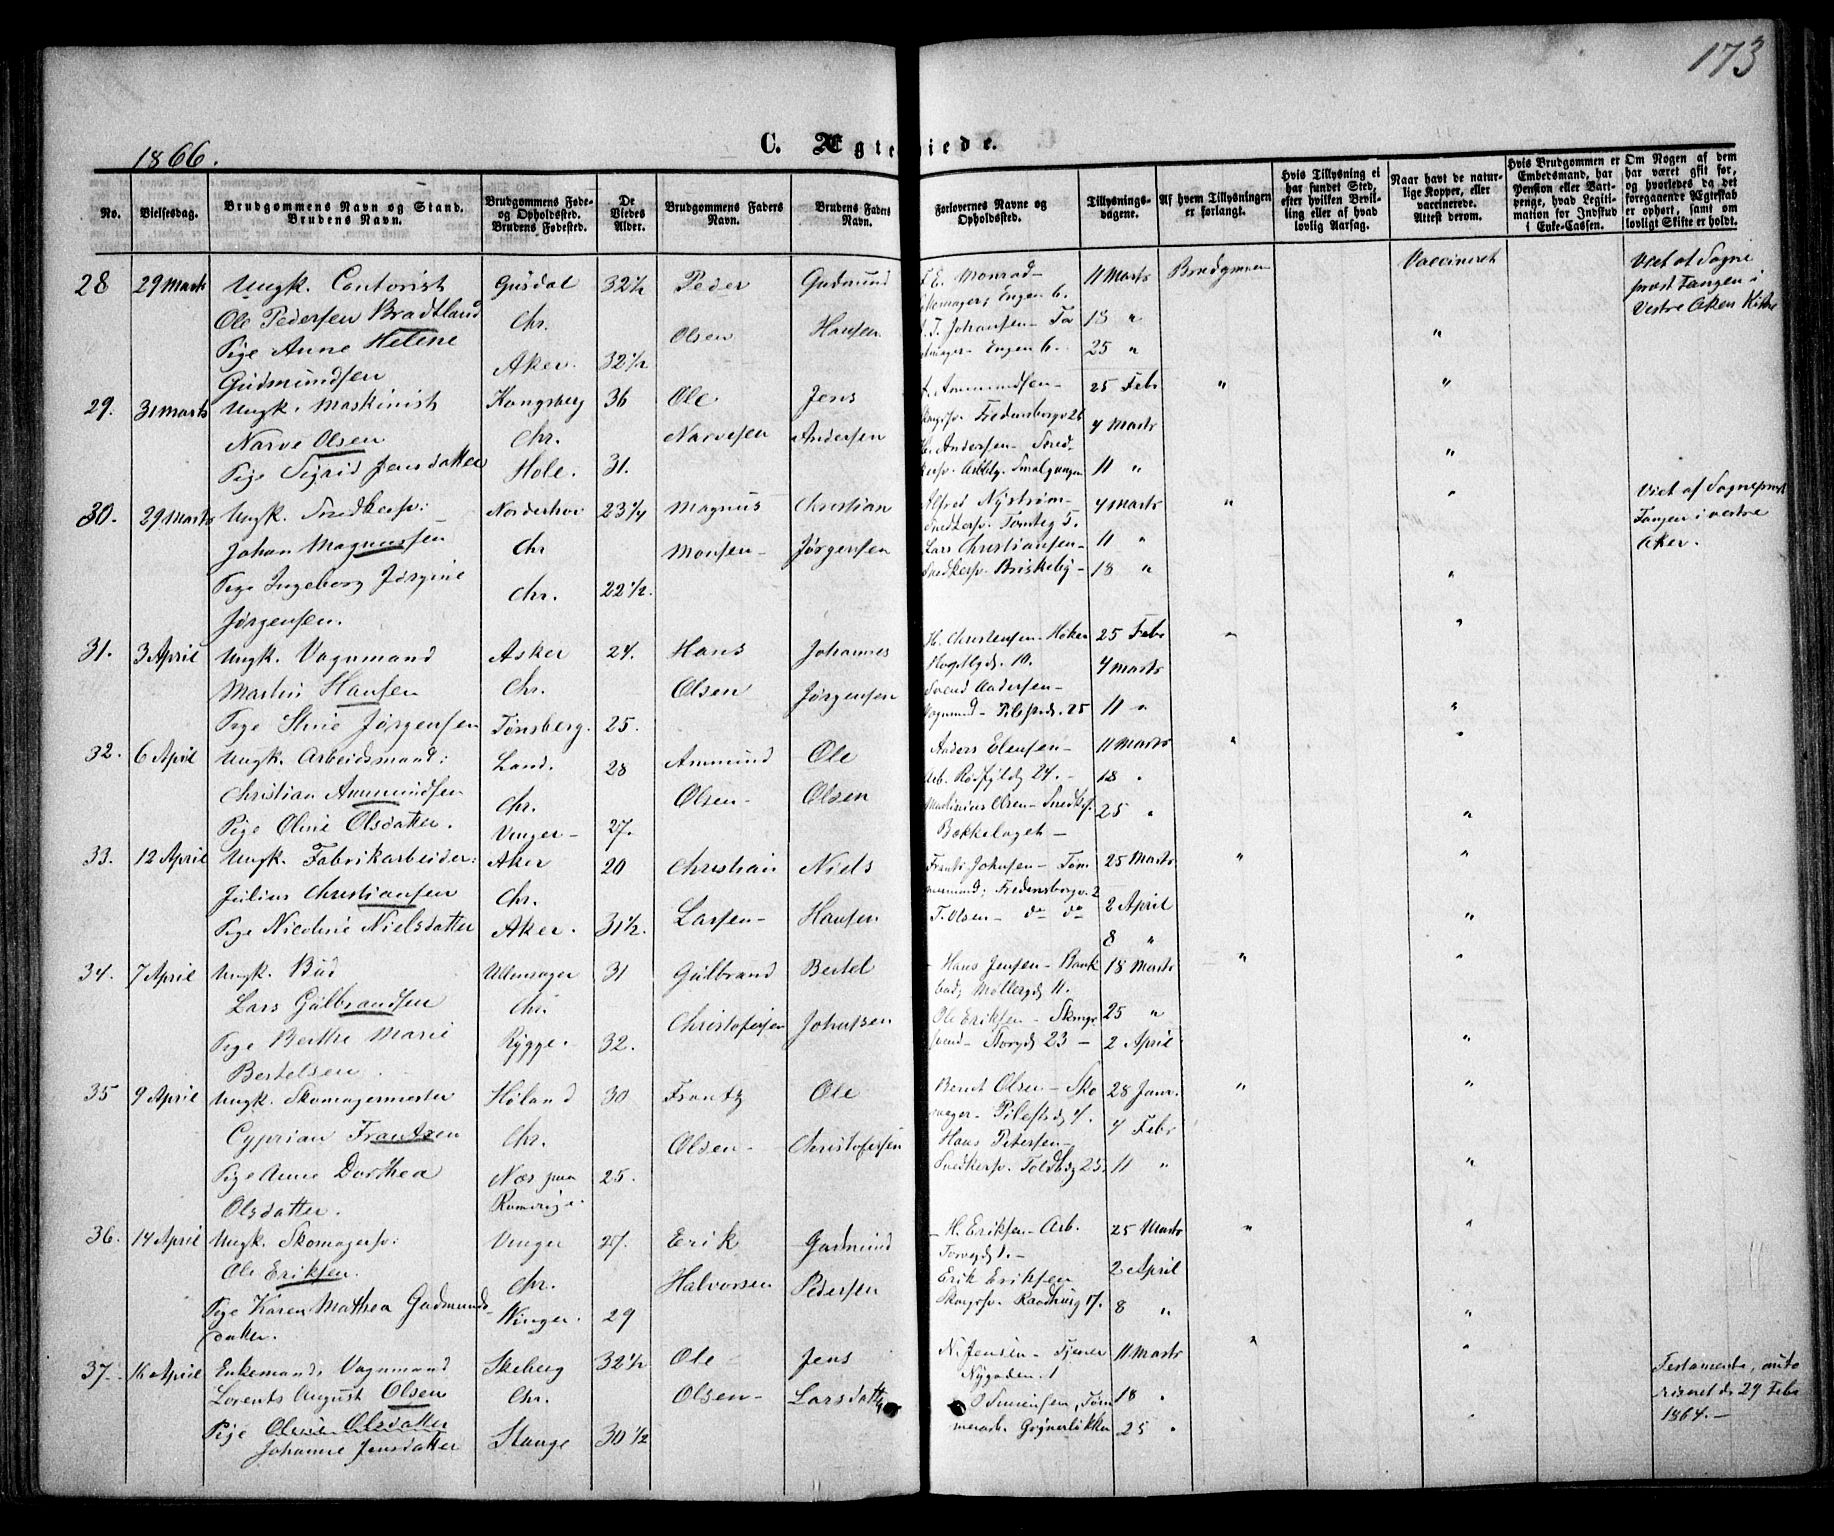 173
1866.
C. Ægteviede.
No.
Vielsesdag.
Brudgommens Navn og Stand.
Brudens Navn.
Brudgommens Føde-
og Opholdssted.
Brudens Fødested.
De
Viedes
Alder.
Brudgommens Faders
Navn.
Brudens Faders
Navn.
Forlovernes Navne og
Opholdssted.
Tillysnings-
dagene.
Af hvem Tillysningen
er forlangt.
Hvis Tillysning ei
har fundet Sted,
efter hvilken Bevil-
ling eller af hvad
lovlig Aarsag.
Naar havt de natur-
lige Kopper, eller
vaccinerede.
Attest derom.
Hvis Brudgommen er
Embedsmand, har
Pension eller Vart-
penge, hvad Legiti-
mation for Indskud
i Enke-Cassen.
Om Nogen af dem
har været gift før,
og hvorledes da det
foregaaende Ægteskab
er ophørt, samt om
lovligt Skifte er holdt.
28 29 Marts Ungk. Contorist Gusdal 32 1/2 Peder Gudmund F. E. Monrad- 11 Marts Brudgommen Vaccineret Viet af Sogne
Ole Pedersen Bradtland Chr. Olsen Hansen Engen 6. 18 " prost Fangen i
Pige Anne Helene Aker. 32 1/2 J. Johansen- Engen 6. 25 " " Vestre Aker Kirke
Gudmundsen
29. 31 Marts Ungk. Maskinist Kongsberg 36 Ole Jens Ammundsen- 25 Febr " "
Narve Olsen Chr. Narvesen Andersen Fredensborgv 26 4 Marts
Pige Sigrid Jensdatter Hole. 31. Andersen- Smalgangen 11 " "
30. 29 Marts Ungk. Snedkersv: Norderhov 23 1/4 Magnus Christian Alfred Nystrøm- 4 Marts " " Viet af Sogneprost
Johan Magnussen Chr Monsen- Jørgensen Snedkersv. Tomteg 5. 11 " Fangen i vestre
Pige Ingeborg Jørgine Chr. 22 1/2. Lars Christiansen- 18 " " Aker.
Jørgensen. Snedkersv. Briskeby-
31. 3 April Ungk. Vognmand Asker 24. Hans Johannes H. Christensen- Høker 25 Febr " "
Martin Hansen Chr. Olsen Jørgensen 10. 4 Marts
Pige Stine Jørgensen Tønsberg. 25. Svend Andersen- Vognmd- Pilestrd. 25 11 " "
32. 6 April Ungk. Arbeidsmand: Land. 28 Ammund Ole Anders Elensen- 11 Marts " "
Christian Ammundsen Chr. Olsen- Olsen Arb. 24.- 18 "
Pige Oline Olsdatter. Vinger- 27. Martinius Olsen- Snedksv. 25 " "
Bækkelaget-
33. 12 April Ungk. Fabrikarbeider: Aker 20 Christian Niels Frants Johnsen- Tøm 25 Marts " "
Julius Christiansen Chr. Larsen- Hansen mermand, Fredensborgv. 2 2 April
Pige Nicoline Nielsdatter Aker. 31 1/2. T. Olsen- do do 8 " "
34. 7 April Ungk. Bud Ullensager 31 Gulbrand Bertel Hans Jensen- Bank 18 Marts " "
Lars Gulbrandsen Chr. Christofersen Johnsen bud, Møllergd 11. 25 "
Pige Berthe Marie Rygge- 32. Ole Eriksen- Storgd 23- 2 April "
Bertelsen.
35 9 April Ungk. Skomagermester Høland 30 Frantz Ole Bernt Olsen- Sko 28 Janr. " "
Cyprian Frantzen Chr. Olsen- Christofersen mager- Pilestrd 7. 4 Febr
Pige Anne Dorthea Næs paa 25. Hans Petersen- 11 " "
Olsdatter. Romerige. Snedkersv. Toldbdg 25.
36. 14 April Ungk. Skomagersv: Vinger 27. Erik Gudmund H. Eriksen- Arb. 25 Marts " "
Ole Eriksen. Chr. Halvorsen Pedersen Torvgd 1.- 2 April
Pige Karen Mathea Gudmunds- Winger. 29 Erik Eriksen 8 " "
datter. Skomgsv. Raadhusg 17.
37. 16 April Enkemand, Vognmand Skeberg 32 1/2 Ole Jens N. Jensen- Tjener 11 Marts " " Testamente, auto
Lorents August Olsen Chr. Olsen- Larsdatter Nygaden 1 18 " riseret d. 29 Febr
Pige Oline Olsdatter O Simensen, Tøm 1864.-
Johanne Jensdatter Stange 30 1/2 merarb. Grønerløkken 25 " "